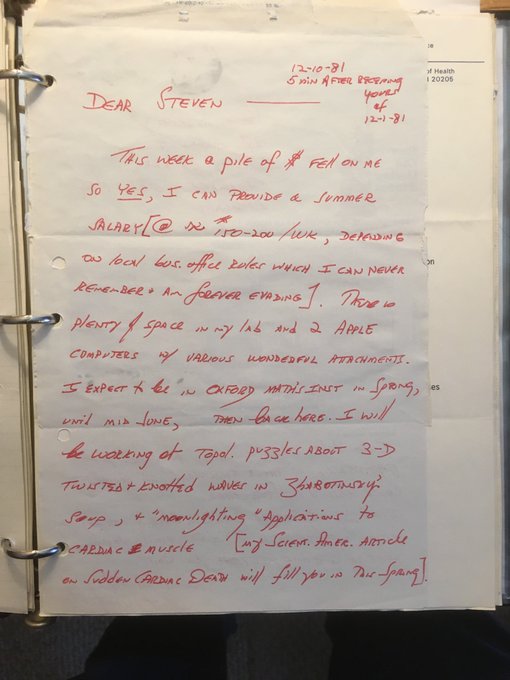 12-10-81
5 min AFTER RECEIVING
YOURS
of
12-1-81
DEAR STEVEN
THIS WEEK a pile of $ FELL ON ME
SO YES, I CAN PROVIDE a SUMMER
SALARY [@ $150-200/WK, DEPENDING
ON local bus. office RULES WHICH I CAN NEVER
REMEMBER + AM forever EVADING]. There is
PLENTY of SPACE in my lab and 2 APPLE
COMPUTERS w/ VARIOUS WONDERFUL ATTACHMENTS.
I EXPECT to be in OXFORD MATHS. INST in SPRING,
until MID JUNE, THEN back here. I will
be WORKING at TOPOL. PUZZLES ABOUT 3-D
TWISTED + KNOTTED WAVES in Zhabotinsky
Soup, + "moonlighting" Applications to
CARDIAC MUSCLE [my Scient. Amer. Article
on Sudden CARDIAC DEATH will fill you in This Spring].
of Health
20205
on
tes